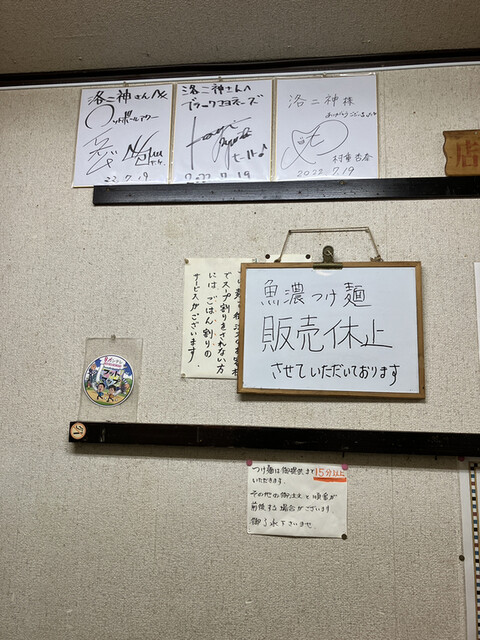 洛二神さんへ
フットボールアワー
22.7.19
洛二神さんへ
ブラックマヨネーズ
2022.7.19
洛二神様
ありがとうございました
村重杏奈
2022.7.19
店
でスープ割りをされない方
には、ごはん割りの
サービスがございます。
魚濃つけ麺
販売休止
させていただいております
つけ麺は御提供まで15分以上
いただきます.
その他の御注文と順番が
前後する場合がございます
御了承下さいませ